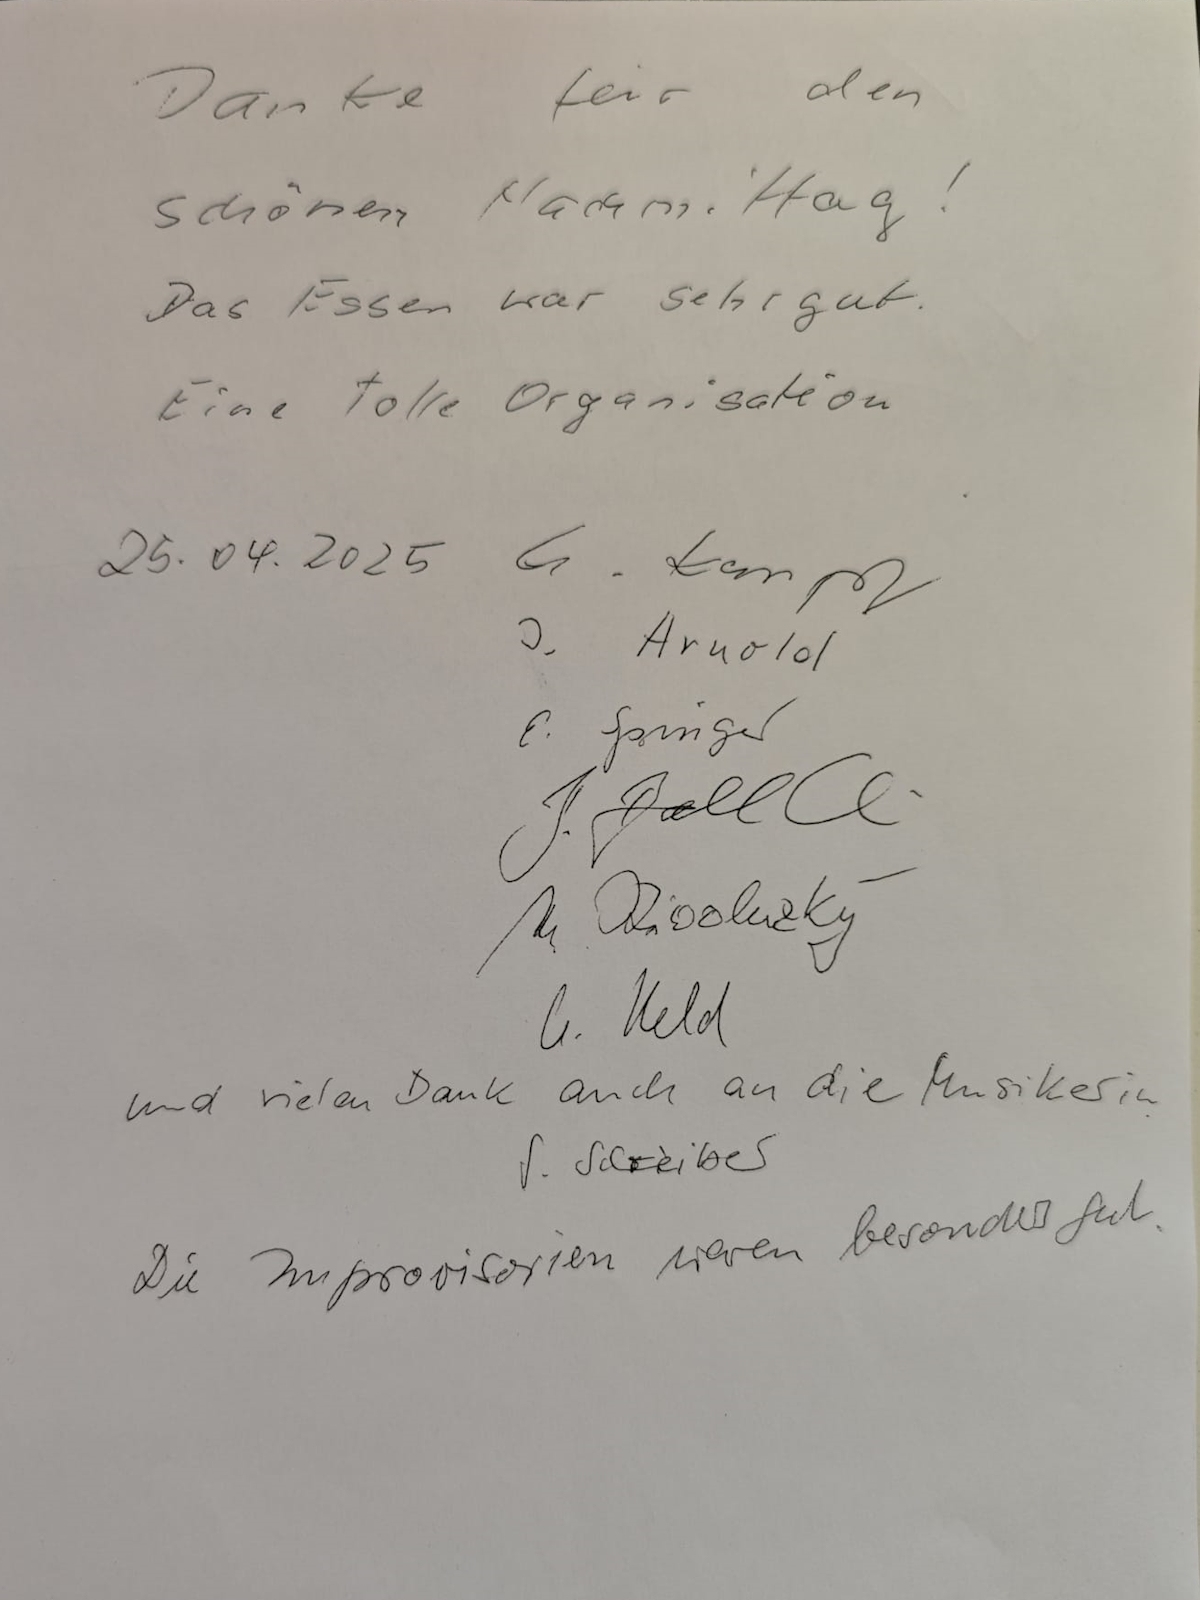 Danke für den
schönen Nachmittag!
Das Essen war sehr gut.
Eine tolle Organisation
25.04.2025 G. Kampf
J. Arnold
E. Springer
J.
M.
G. Held
und vielen Dank auch an die Musikerin
S. Schreiber
Die Improvisorien waren besonders gut.